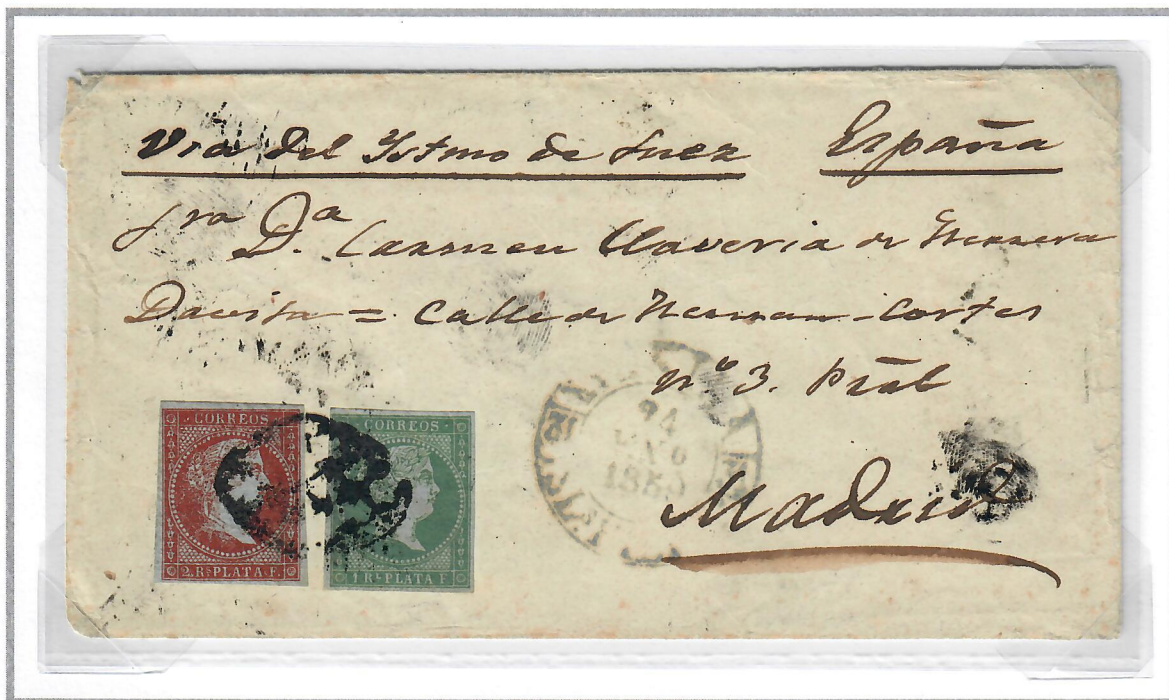 Via Del Ystmo de Suez España
Sra Da Carmen Claveria de Herrera
Calle de Hernan-Cortes
nº 3. Pral
Madrid
CORREOS
2. Rs PLATA F.
CORREOS
1 Rl PLATA F.
24